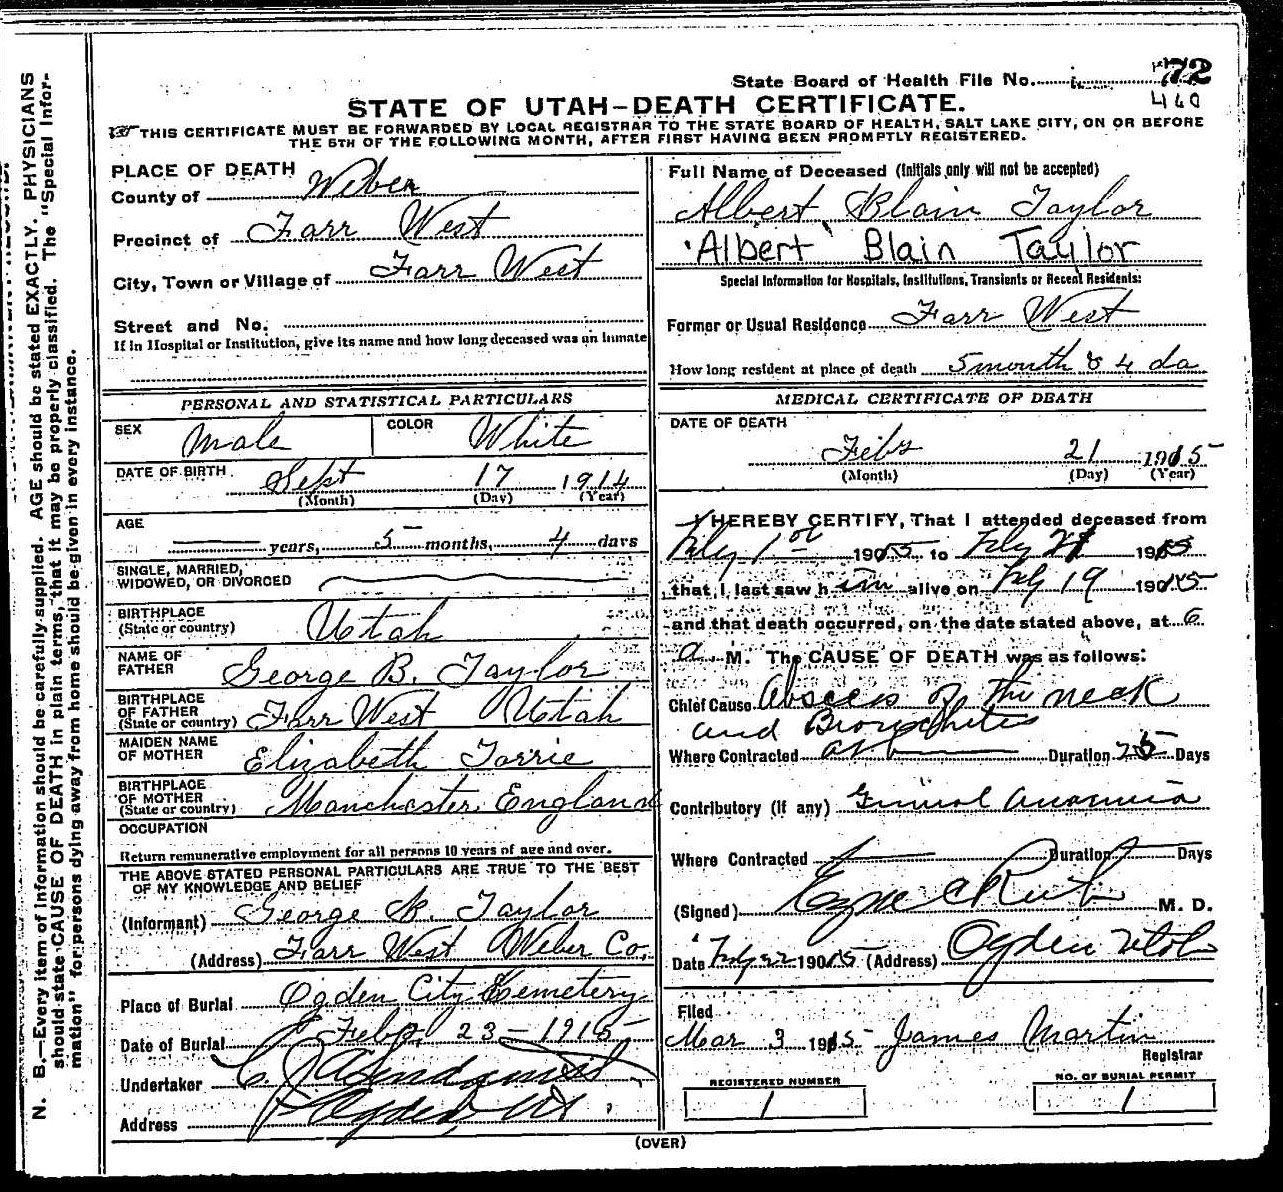 State Board of Health File No. 72
460
STATE OF UTAH—DEATH CERTIFICATE.
THIS CERTIFICATE MUST BE FORWARDED BY LOCAL REGISTRAR TO THE STATE BOARD OF HEALTH, SALT LAKE CITY, ON OR BEFORE
THE 5TH OF THE FOLLOWING MONTH, AFTER FIRST HAVING BEEN PROMPTLY REGISTERED.
PLACE OF DEATH
County of Weber
Precinct of Farr West
City, Town or Village of Farr West
Street and No.
If in Hospital or Institution, give its name and how long deceased was an inmate
PERSONAL AND STATISTICAL PARTICULARS
SEX Male COLOR White
DATE OF BIRTH Sept 17 1914
(Month) (Day) (Year)
AGE
years, 5 months, 4 days
SINGLE, MARRIED,
WIDOWED, OR DIVORCED
BIRTHPLACE
(State or country) Utah
NAME OF
FATHER George B. Taylor
BIRTHPLACE
OF FATHER
(State or country) Farr West Utah
MAIDEN NAME
OF MOTHER Elizabeth Torrie
BIRTHPLACE
OF MOTHER
(State or country) Manchester England
OCCUPATION
Return remunerative employment for all persons 10 years of age and over.
THE ABOVE STATED PERSONAL PARTICULARS ARE TRUE TO THE BEST
OF MY KNOWLEDGE AND BELIEF
(Informant) George B. Taylor
(Address) Farr West Weber Co.
Place of Burial Ogden City Cemetery
Date of Burial Feby 23 - 1915
Undertaker
Address Ogden Ut.
Full Name of Deceased (Initials only will not be accepted)
Albert Blain Taylor
Albert Blain Taylor
Special Information for Hospitals, Institutions, Transients or Recent Residents:
Former or Usual Residence Farr West
How long resident at place of death 5 month & 4 da
MEDICAL CERTIFICATE OF DEATH
DATE OF DEATH
Feby 21 1915
(Month) (Day) (Year)
I HEREBY CERTIFY, That I attended deceased from
Feby 1st 1915 to Feby 21 1915
that I last saw him alive on Feby 19 1915
and that death occurred, on the date stated above, at 6
a. M. The CAUSE OF DEATH was as follows:
Chief Cause Abscess of the neck
and Bronchitis
Where Contracted Duration 25 Days
Contributory (if any) General Anaemia
Where Contracted Duration Days
(Signed) M. D.
Date Feby 22 1915 (Address) Ogden Utah
Filed
Mar 3 1915 James Martin
Registrar
REGISTERED NUMBER
1
NO. OF BURIAL PERMIT
1
(OVER)
N. B.—Every item of information should be carefully supplied. AGE should be stated EXACTLY. PHYSICIANS
should state CAUSE OF DEATH in plain terms, that it may be properly classified. The "Special Infor-
mation" for persons dying away from home should be given in every instance.